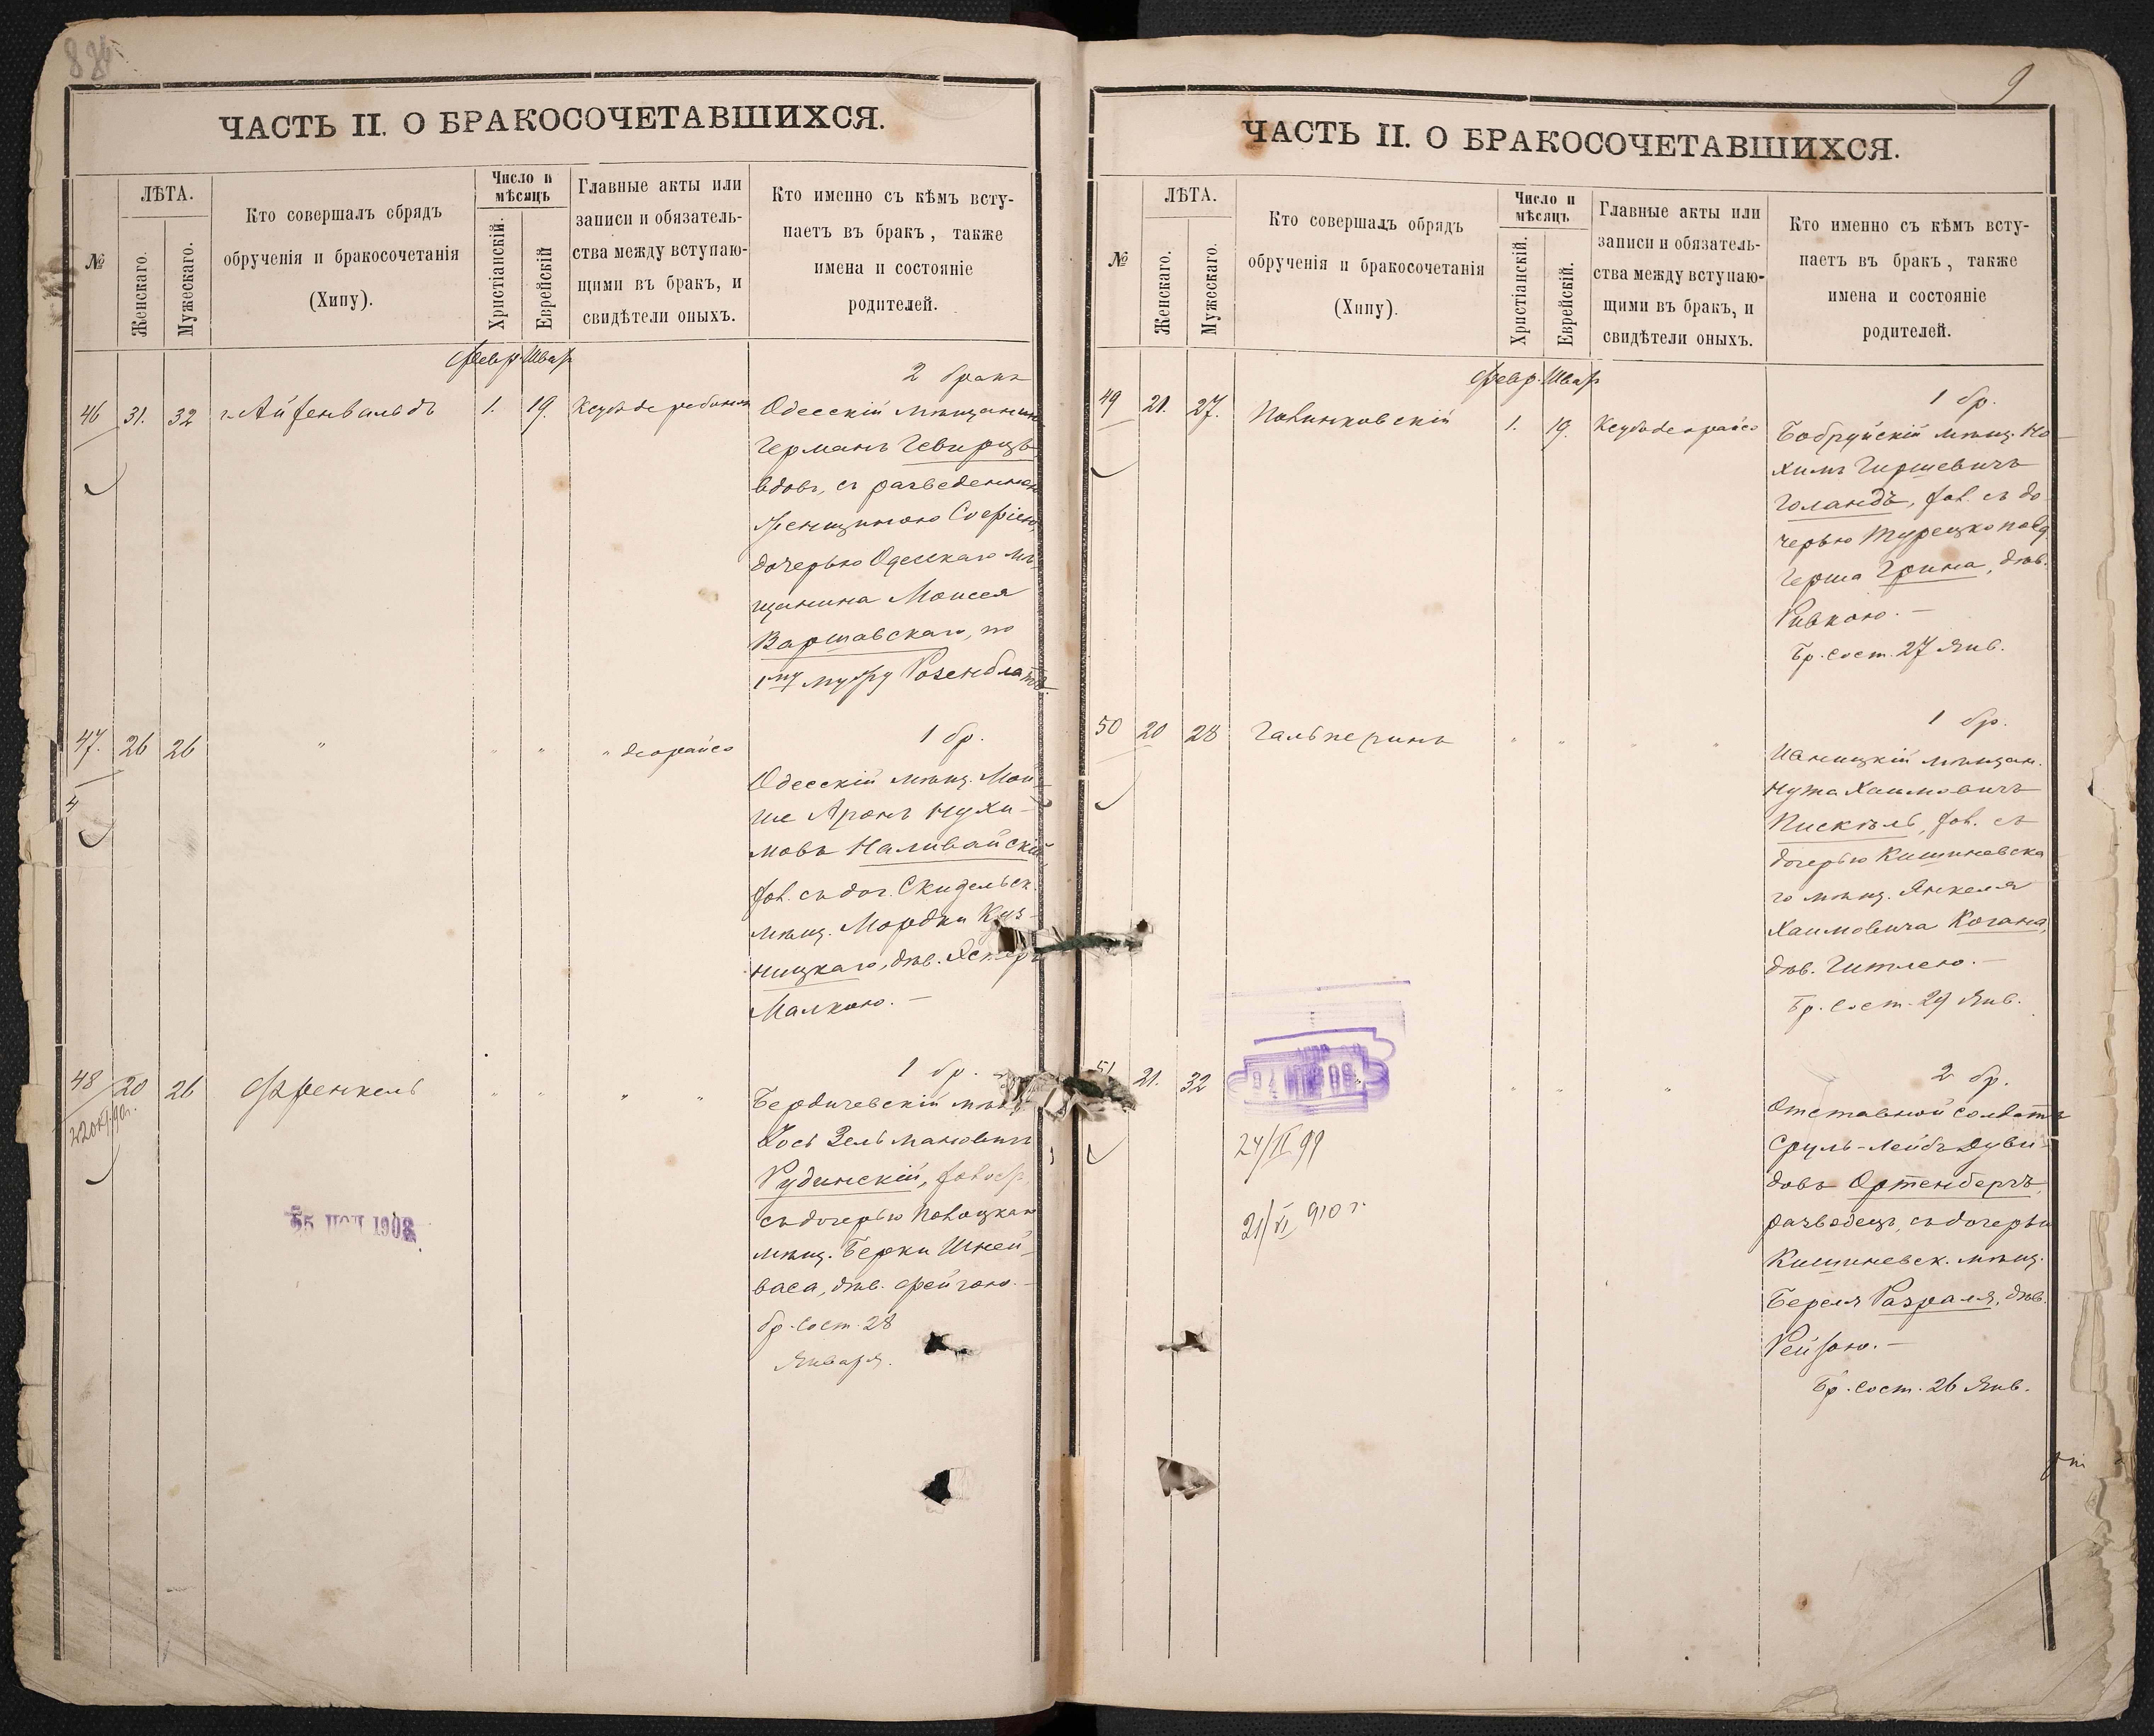 884
ЧАСТЬ II. О БРАКОСОЧЕТАВШИХСЯ.
№
ЛѢТА.
Женскаго.
Мужескаго.
Кто совершалъ обрядъ
обрученія и бракосочетанія
(Хипу).
Число и
мѣсяцъ
Христіанскій.
Еврейскій
Главные акты или
записи и обязатель-
ства между вступаю-
щими въ бракъ, и
свидѣтели оныхъ.
Кто именно съ кѣмъ всту-
паетъ въ бракъ, также
имена и состояніе
родителей.
Февр. Шват
46 31. 32 Айзенвальдъ 1. 19.
2 бракъ
Одесскій мѣщанинъ
Германъ Гевирцъ
вдов., съ разведенною
женщиною Софіею,
дочерью Одесскаго мѣ-
щанина Моисея
Варшавскаго, по
1му мужу Розенблатъ
47. 26 26 " " " " деорайсо
4
1 бр.
Одесскій мѣщ. Мои-
ше Аронъ Нухи-
мовъ Наливайскій
хол. съ доч. Скидельск.
мѣщ. Мордки Куз-
ницкаго, дѣв.
Малкою. —
48 20 26 Френкель " " " "
1 бр.
Бердичевскій мѣщ.
Йось Зельмановичъ
Рудинскій,
съ дочерью Полоцкаго
мѣщ. Берки Шней-
васа, дѣв. Фейгою. —
бр. сост. 28
Января.
1908
9
ЧАСТЬ II. О БРАКОСОЧЕТАВШИХСЯ.
№
ЛѢТА.
Женскаго.
Мужескаго.
Кто совершалъ обрядъ
обрученія и бракосочетанія
(Хипу).
Число и
мѣсяцъ
Христіанскій.
Еврейскій.
Главные акты или
записи и обязатель-
ства между вступаю-
щими въ бракъ, и
свидѣтели оныхъ.
Кто именно съ кѣмъ всту-
паетъ въ бракъ, также
имена и состояніе
родителей.
Февр. Шват
49 21. 27. Полинковскій 1. 19.
1 бр.
Бобруйскій мѣщ. Но-
химъ Гиршевичъ
Голандъ, хол. съ до-
черью Турецкопод.
Герша Грина, дѣв.
Ривкою. —
Бр. сост. 27 Янв.
50 20 28 Гальперинъ " " " "
1 бр.
мѣщан.
Нута Хаимовичъ
Пискѣль, хол. съ
дочерью Кишиневска
го мѣщ. Янкеля
Хаимовича Когана,
дѣв. Гитлею. —
Бр. сост. 29 Янв.
51 21. 32 " " "
24/II 99
21/VI 910 г.
2 бр.
Отставной солдатъ
Сруль-Лейбъ Дуви-
довъ Ортенбергъ,
разводецъ, съ дочерью
Кишиневск. мѣщ.
Береля Разраля, дѣв.
Рейзою. —
Бр. сост. 26 Янв.